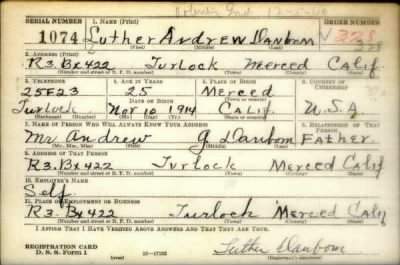 SERIAL NUMBER 1. NAME (Print) ORDER NUMBER
1074 Luther Andrew Danbom V 328
(First) (Middle) (Last)
2. ADDRESS (Print)
R3. Bx 422 Turlock Merced Calif.
(Number and street or R. F. D. number) (Town) (County) (State)
3. TELEPHONE 4. AGE IN YEARS 5. PLACE OF BIRTH 6. COUNTRY OF CITIZENSHIP
25F23 25 Merced
(Town or county)
Turlock Nov 10 1914 Calif. U.S.A
(Exchange) (Number) (Mo.) (Day) (Yr.) (State or country)
7. NAME OF PERSON WHO WILL ALWAYS KNOW YOUR ADDRESS 8. RELATIONSHIP OF THAT PERSON
Mr. Andrew G Danbom Father.
(Mr., Mrs., Miss) (First) (Middle) (Last)
9. ADDRESS OF THAT PERSON
R3. Bx 422 Turlock Merced Calif
(Number and street or R. F. D. number) (Town) (County) (State)
10. EMPLOYER'S NAME
Self
11. PLACE OF EMPLOYMENT OR BUSINESS
R3. Bx 422 Turlock Merced Calif
(Number and street or R. F. D. number) (Town) (County) (State)
I AFFIRM THAT I HAVE VERIFIED ABOVE ANSWERS AND THAT THEY ARE TRUE.
REGISTRATION CARD
D. S. S. Form 1 Luther Danbom